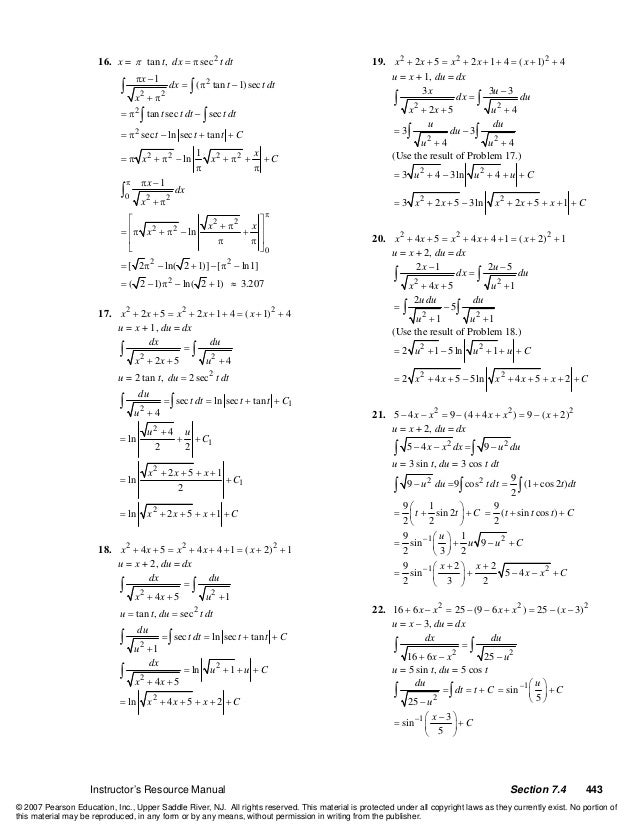 16. x = π tan t, dx = π sec² t dt
∫ (πx − 1)/√(x² + π²) dx = ∫(π² tan t − 1) sec t dt
= π² ∫ tan t sec t dt − ∫ sec t dt
= π² sec t − ln|sec t + tan t| + C
= π√(x² + π²) − ln|(1/π)√(x² + π²) + x/π| + C
∫₀^π (πx − 1)/√(x² + π²) dx
= [π√(x² + π²) − ln|√(x² + π²)/π + x/π|]₀^π
= [√2π² − ln(√2 + 1)] − [π² − ln1]
= (√2 − 1)π² − ln(√2 + 1) ≈ 3.207
17. x² + 2x + 5 = x² + 2x + 1 + 4 = (x + 1)² + 4
u = x + 1, du = dx
∫ dx/√(x² + 2x + 5) = ∫ du/√(u² + 4)
u = 2 tan t, du = 2 sec² t dt
∫ du/√(u² + 4) = ∫ sec t dt = ln|sec t + tan t| + C₁
= ln|√(u² + 4)/2 + u/2| + C₁
= ln|(√(x² + 2x + 5) + x + 1)/2| + C₁
= ln|√(x² + 2x + 5) + x + 1| + C
18. x² + 4x + 5 = x² + 4x + 4 + 1 = (x + 2)² + 1
u = x + 2, du = dx
∫ dx/√(x² + 4x + 5) = ∫ du/√(u² + 1)
u = tan t, du = sec² t dt
∫ du/√(u² + 1) = ∫ sec t dt = ln|sec t + tan t| + C
∫ dx/√(x² + 4x + 5) = ln|√(u² + 1) + u| + C
= ln|√(x² + 4x + 5) + x + 2| + C
19. x² + 2x + 5 = x² + 2x + 1 + 4 = (x + 1)² + 4
u = x + 1, du = dx
∫ 3x/√(x² + 2x + 5) dx = ∫ (3u − 3)/√(u² + 4) du
= 3∫ u/√(u² + 4) du − 3∫ du/√(u² + 4)
(Use the result of Problem 17.)
= 3√(u² + 4) − 3 ln|√(u² + 4) + u| + C
= 3√(x² + 2x + 5) − 3 ln|√(x² + 2x + 5) + x + 1| + C
20. x² + 4x + 5 = x² + 4x + 4 + 1 = (x + 2)² + 1
u = x + 2, du = dx
∫ (2x − 1)/√(x² + 4x + 5) dx = ∫ (2u − 5)/√(u² + 1) du
= ∫ 2u du/√(u² + 1) − 5∫ du/√(u² + 1)
(Use the result of Problem 18.)
= 2√(u² + 1) − 5 ln|√(u² + 1) + u| + C
= 2√(x² + 4x + 5) − 5 ln|√(x² + 4x + 5) + x + 2| + C
21. 5 − 4x − x² = 9 − (4 + 4x + x²) = 9 − (x + 2)²
u = x + 2, du = dx
∫ √(5 − 4x − x²) dx = ∫ √(9 − u²) du
u = 3 sin t, du = 3 cos t dt
∫ √(9 − u²) du = 9∫ cos² t dt = 9/2 ∫ (1 + cos 2t)dt
= 9/2 (t + 1/2 sin 2t) + C = 9/2 (t + sin t cos t) + C
= 9/2 sin⁻¹(u/3) + 1/2 u√(9 − u²) + C
= 9/2 sin⁻¹((x + 2)/3) + (x + 2)/2 √(5 − 4x − x²) + C
22. 16 + 6x − x² = 25 − (9 − 6x + x²) = 25 − (x − 3)²
u = x − 3, du = dx
∫ dx/√(16 + 6x − x²) = ∫ du/√(25 − u²)
u = 5 sin t, du = 5 cos t
∫ du/√(25 − u²) = ∫ dt = t + C = sin⁻¹(u/5) + C
= sin⁻¹((x − 3)/5) + C
Instructor's Resource Manual Section 7.4 443
© 2007 Pearson Education, Inc., Upper Saddle River, NJ. All rights reserved. This material is protected under all copyright laws as they currently exist. No portion of
this material may be reproduced, in any form or by any means, without permission in writing from the publisher.